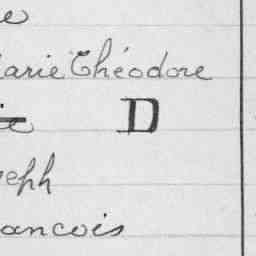 e
arie Théodore
ie D
seph
ancois